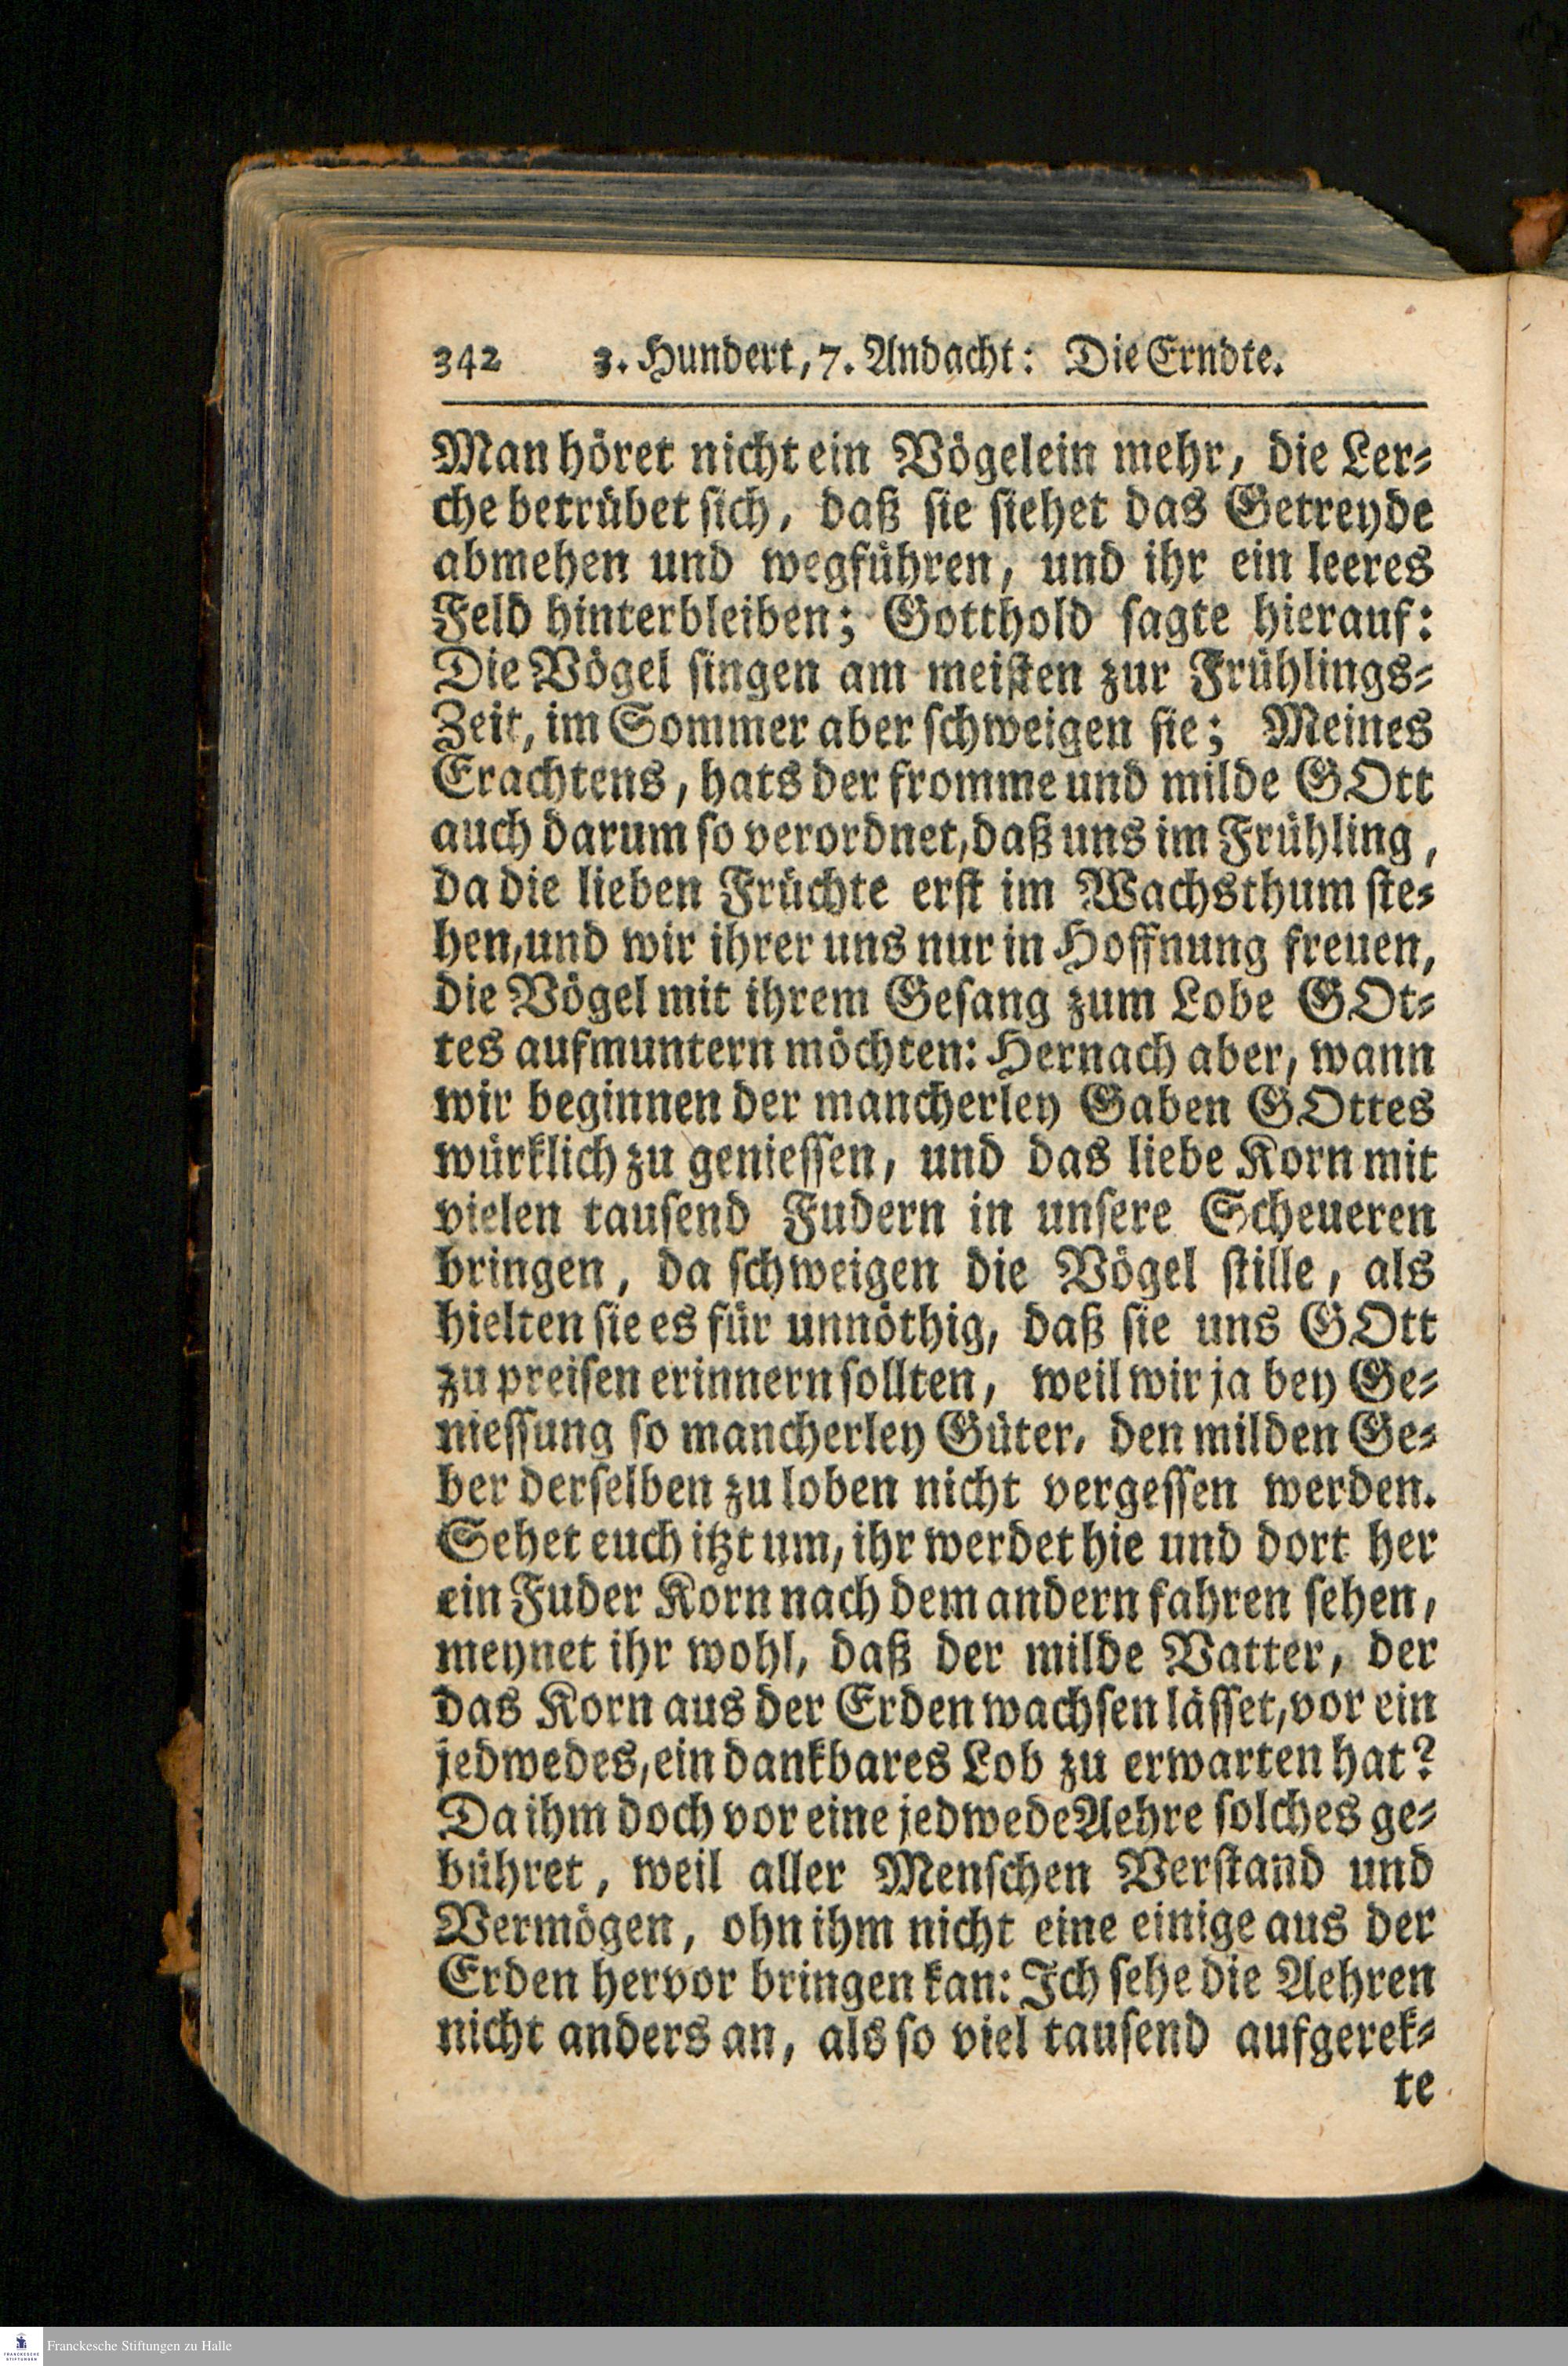 342 3. Hundert, 7. Andacht: Die Erndte.
Man höret nicht ein Vögelein mehr, die Ler-
che betrübet sich, daß sie siehet das Getreyde
abmehen und wegführen, und ihr ein leeres
Feld hinterbleiben; Gotthold sagte hierauf:
Die Vögel singen am meisten zur Frühlings-
Zeit, im Sommer aber schweigen sie; Meines
Erachtens, hats der fromme und milde GOtt
auch darum so verordnet, daß uns im Frühling,
da die lieben Früchte erst im Wachsthum ste-
hen, und wir ihrer uns nur in Hoffnung freuen,
die Vögel mit ihrem Gesang zum Lobe GOt-
tes aufmuntern möchten: Hernach aber, wann
wir beginnen der mancherley Gaben GOttes
würklich zu geniessen, und das liebe Korn mit
vielen tausend Fudern in unsere Scheueren
bringen, da schweigen die Vögel stille, als
hielten sie es für unnöthig, daß sie uns GOtt
zu preisen erinnern sollten, weil wir ja bey Ge-
niessung so mancherley Güter, den milden Ge-
ber derselben zu loben nicht vergessen werden.
Sehet euch itzt um, ihr werdet hie und dort her
ein Fuder Korn nach dem andern fahren sehen,
meynet ihr wohl, daß der milde Vatter, der
das Korn aus der Erden wachsen lässet, vor ein
jedwedes, ein dankbares Lob zu erwarten hat?
Da ihm doch vor eine jedwede Aehre solches ge-
bühret, weil aller Menschen Verstand und
Vermögen, ohn ihm nicht eine einige aus der
Erden hervor bringen kan: Ich sehe die Aehren
nicht anders an, als so viel tausend aufgerek-
te
Franckesche Stiftungen zu Halle